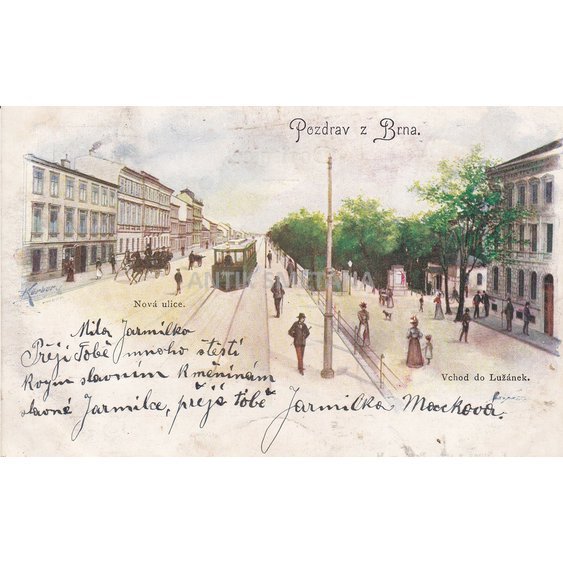 Pozdrav z Brna.
ANTIK SMETANA
Nová ulice.
Vchod do Lužánek.
Milá Jarmilko
Přeji Tobě mnoho štěstí
slavním Kměninám
slavné Jarmilce, přejé tobě
Jarmilka Macková.